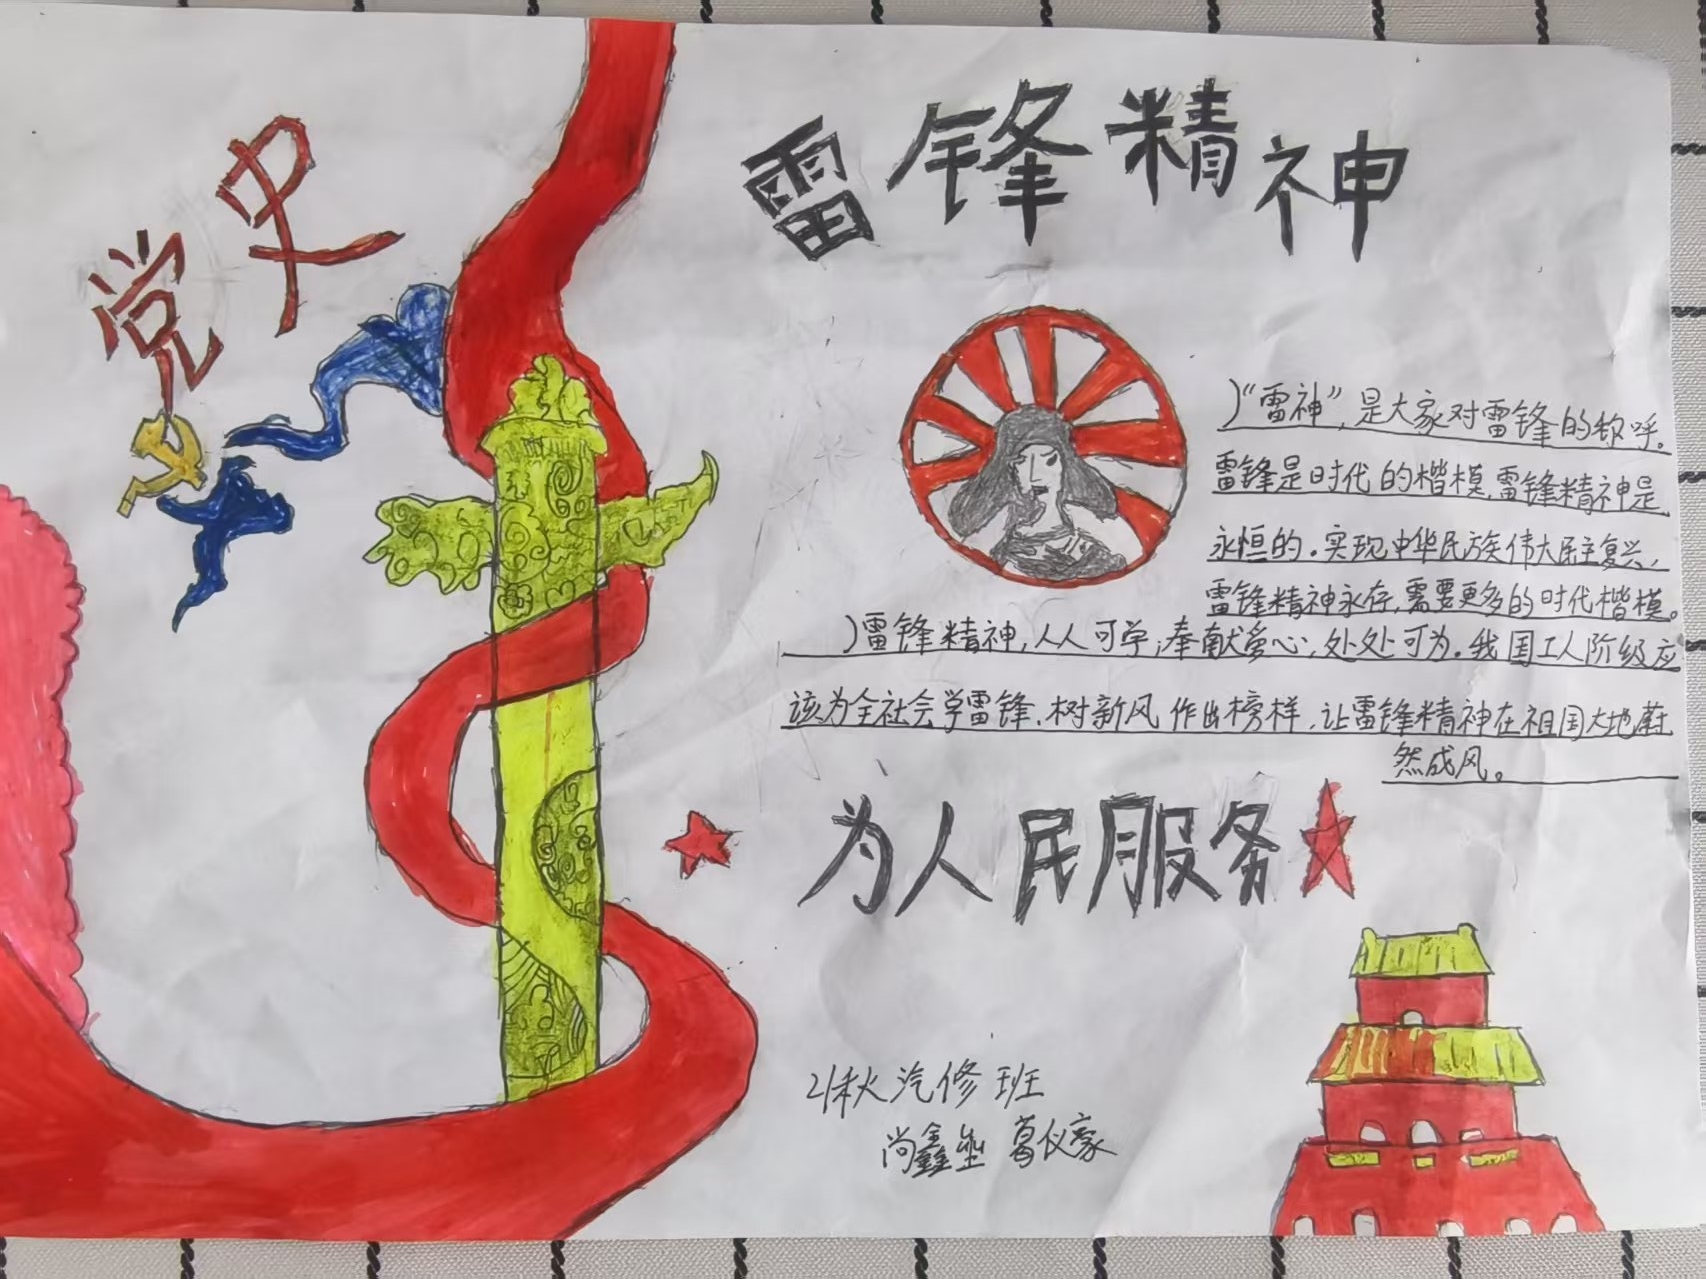 党史
雷锋精神
“雷神”,是大家对雷锋的称呼。
雷锋是时代的楷模,雷锋精神是
永恒的。实现中华民族伟大民主复兴,
雷锋精神永存,需要更多的时代楷模。
雷锋精神,人人可学;奉献爱心,处处可为。我国工人阶级应
该为全社会学雷锋、树新风作出榜样,让雷锋精神在祖国大地蔚
然成风。
为人民服务
21秋汽修班
尚鑫垒 葛仪豪